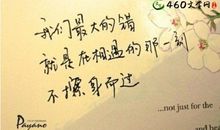 460文学网
我们最大的错
就是在相遇的那一刻
不擦身而过
...not just for the
Payano